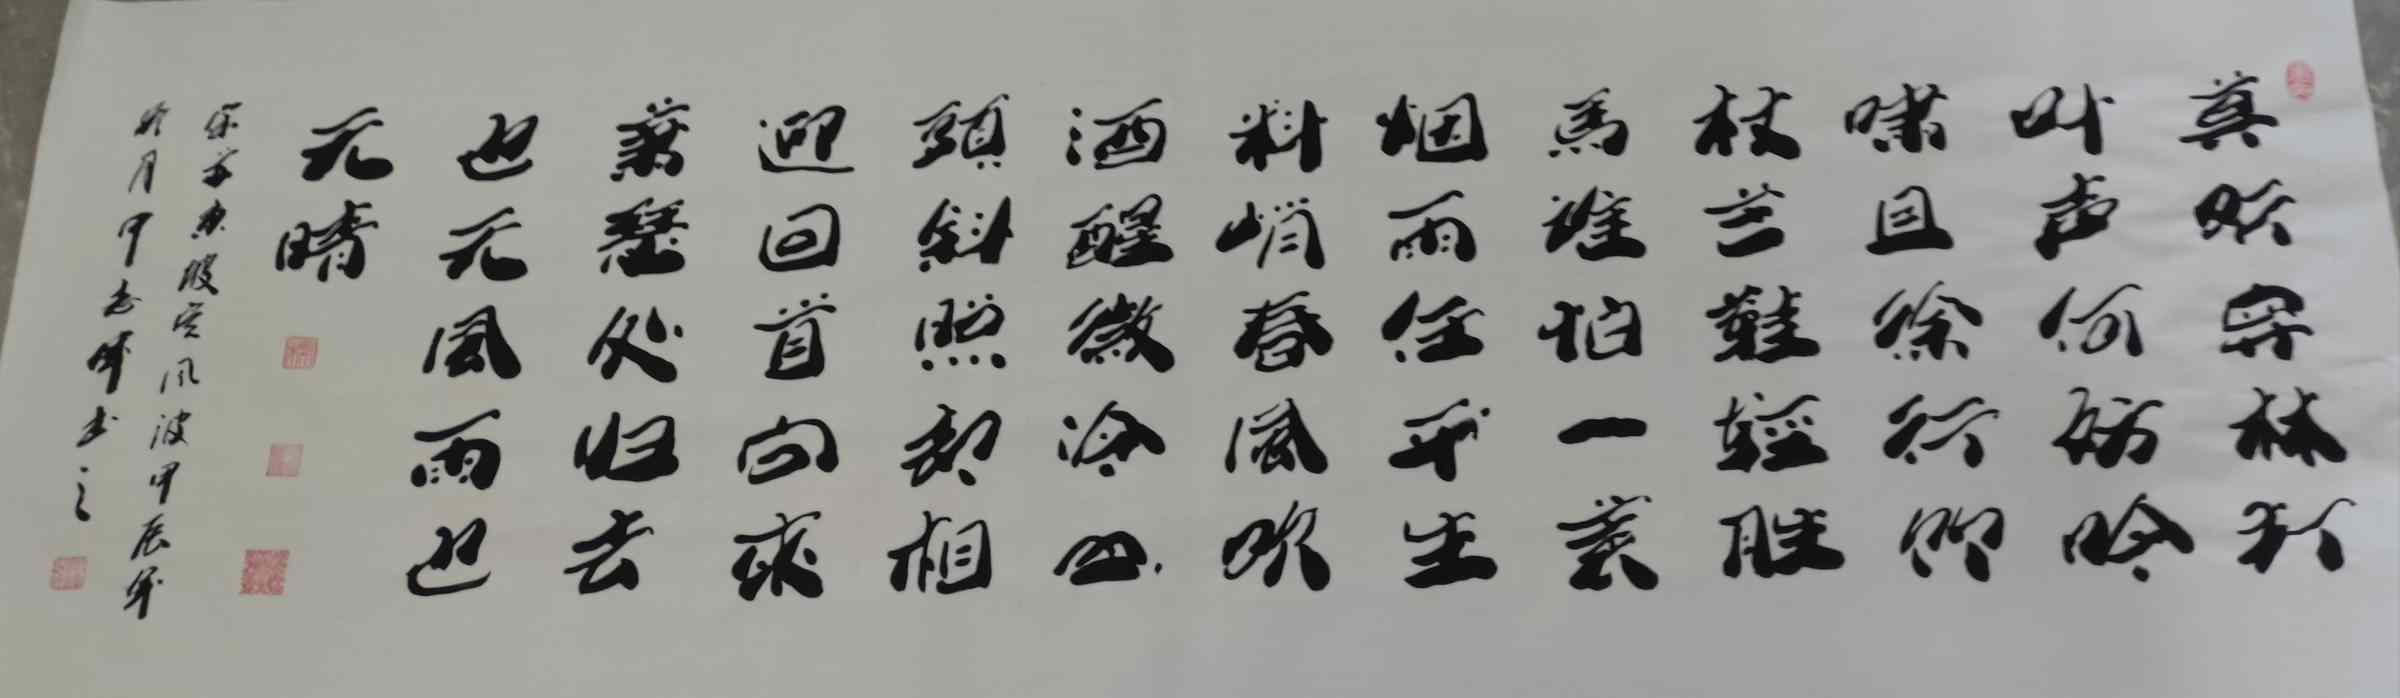 莫听穿林打
叶声何妨吟
啸且徐行竹
杖芒鞋輕胜
馬谁怕一蓑
烟雨任平生
料峭春風吹
酒醒微冷山
頭斜照却相
迎回首向来
萧瑟处归去
也无風雨也
无晴
东坡定风波甲辰年
冬月申志伟书之